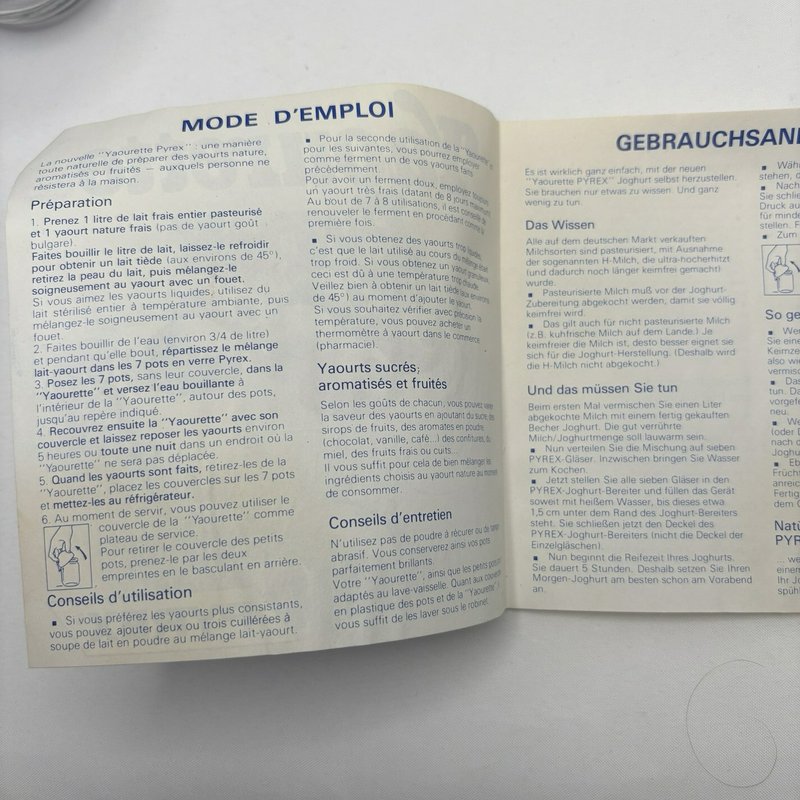 MODE D'EMPLOI
La nouvelle "Yaourette Pyrex" : une manière
toute naturelle de préparer des yaourts nature,
aromatisés ou fruités — auxquels personne ne
résistera à la maison.
Préparation
1. Prenez 1 litre de lait frais entier pasteurisé
et 1 yaourt nature frais (pas de yaourt goût
bulgare).
Faites bouillir le litre de lait, laissez-le refroidir
pour obtenir un lait tiède (aux environs de 45°),
retirez la peau du lait, puis mélangez-le
soigneusement au yaourt avec un fouet.
Si vous aimez les yaourts liquides, utilisez du
lait stérilisé entier à température ambiante, puis
mélangez-le soigneusement au yaourt avec un
fouet.
2. Faites bouillir de l'eau (environ 3/4 de litre)
et pendant qu'elle bout, répartissez le mélange
lait-yaourt dans les 7 pots en verre Pyrex.
3. Posez les 7 pots, sans leur couvercle, dans la
"Yaourette" et versez l'eau bouillante à
l'intérieur de la "Yaourette", autour des pots,
jusqu'au repère indiqué.
4. Recouvrez ensuite la "Yaourette" avec son
couvercle et laissez reposer les yaourts environ
5 heures ou toute une nuit dans un endroit où la
"Yaourette" ne sera pas déplacée.
5. Quand les yaourts sont faits, retirez-les de la
"Yaourette", placez les couvercles sur les 7 pots
et mettez-les au réfrigérateur.
6. Au moment de servir, vous pouvez utiliser le
couvercle de la "Yaourette" comme
plateau de service.
Pour retirer le couvercle des petits
pots, prenez-le par les deux
empreintes en le basculant en arrière.
Conseils d'utilisation
▪ Si vous préférez les yaourts plus consistants,
vous pouvez ajouter deux ou trois cuillérées à
soupe de lait en poudre au mélange lait-yaourt.
▪ Pour la seconde utilisation de la "Yaourette"
et pour les suivantes, vous pourrez employer
comme ferment un de vos yaourts faits
précédemment.
Pour avoir un ferment doux, employez toujours
un yaourt très frais (datant de 8 jours maximum).
Au bout de 7 à 8 utilisations, il est conseillé de
renouveler le ferment en procédant comme la
première fois.
▪ Si vous obtenez des yaourts trop liquides,
c'est que le lait utilisé au cours du mélange était
trop froid. Si vous obtenez un yaourt granuleux,
ceci est dû à une température trop chaude.
Veillez bien à obtenir un lait tiède (aux environs
de 45°) au moment d'ajouter le yaourt.
Si vous souhaitez vérifier avec précision la
température, vous pouvez acheter un
thermomètre à yaourt dans le commerce
(pharmacie).
Yaourts sucrés,
aromatisés et fruités
Selon les goûts de chacun, vous pouvez varier
la saveur des yaourts en ajoutant du sucre, des
sirops de fruits, des aromates en poudre,
(chocolat, vanille, café...) des confitures, du
miel, des fruits frais ou cuits...
Il vous suffit pour cela de bien mélanger les
ingrédients choisis au yaourt nature au moment
de consommer.
Conseils d'entretien
N'utilisez pas de poudre à récurer ou de tampon
abrasif. Vous conserverez ainsi vos pots
parfaitement brillants.
Votre "Yaourette", ainsi que les petits pots sont
adaptés au lave-vaisselle. Quant aux couvercles
en plastique des pots et de la "Yaourette", il
vous suffit de les laver sous le robinet.
GEBRAUCHSAN
Es ist wirklich ganz einfach, mit der neuen
"Yaourette PYREX" Joghurt selbst herzustellen.
Sie brauchen nur etwas zu wissen. Und ganz
wenig zu tun.
Das Wissen
Alle auf dem deutschen Markt verkauften
Milchsorten sind pasteurisiert, mit Ausnahme
der sogenannten H-Milch, die ultra-hocherhitzt
(und dadurch noch länger keimfrei gemacht)
wurde.
▪ Pasteurisierte Milch muß vor der Joghurt-
Zubereitung abgekocht werden, damit sie völlig
keimfrei wird.
▪ Das gilt auch für nicht pasteurisierte Milch
(z.B. kuhfrische Milch auf dem Lande.) Je
keimfreier die Milch ist, desto besser eignet sie
sich für die Joghurt-Herstellung. (Deshalb wird
die H-Milch nicht abgekocht.)
Und das müssen Sie tun
Beim ersten Mal vermischen Sie einen Liter
abgekochte Milch mit einem fertig gekauften
Becher Joghurt. Die gut verrührte
Milch/Joghurtmenge soll lauwarm sein.
▪ Nun verteilen Sie die Mischung auf sieben
PYREX-Gläser. Inzwischen bringen Sie Wasser
zum Kochen.
▪ Jetzt stellen Sie alle sieben Gläser in den
PYREX-Joghurt-Bereiter und füllen das Gerät
soweit mit heißem Wasser, bis dieses etwa
1,5 cm unter dem Rand des Joghurt-Bereiters
steht. Sie schließen jetzt den Deckel des
PYREX-Joghurt-Bereiters (nicht die Deckel der
Einzelgläschen).
▪ Nun beginnt die Reifezeit Ihres Joghurts.
Sie dauert 5 Stunden. Deshalb setzen Sie Ihren
Morgen-Joghurt am besten schon am Vorabend
an.
▪ Wäh
▪ Nach
Sie schlie
Druck au
für minde
stellen. F
▪ Zum
So ge
▪ We
Sie eine
Keimze
also wi
vermis
▪ Das
tun. Da
vorgef
neu m
▪ We
(oder D
nach d
Joghu
▪ Eb
Frücht
anreic
Fertig
dem G
Nat
PYR
... we
einem
Ihr Jo
spüh